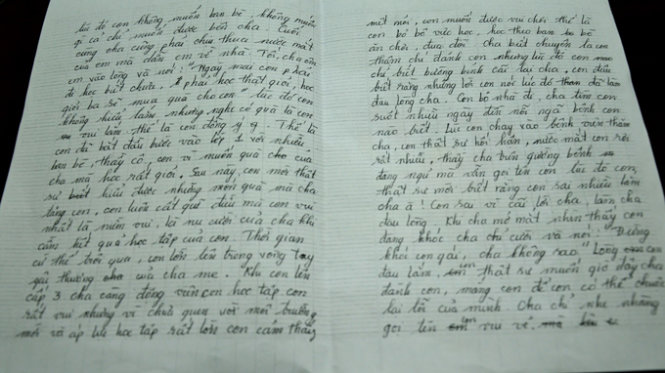 lúc đó con không muốn bạn bè, không muốn
gì cả chỉ muốn được bên cha. Cuối
cùng cha cũng phải chịu thua nước mắt
của em mà dẫn em về nhà. Tối, cha ôm
em vào lòng và nói: "Ngày mai con phải
đi học biết chưa, à phải học thật giỏi, học
giỏi ba sẽ mua quà cho con" lúc đó con
không hiểu lắm nhưng nghĩ có quà là con
vui lắm thế là con đồng ý. Thế là
con đã bắt đầu bước vào lớp 1 với nhiều
bạn bè, thầy cô, con vì muốn quà của
cha mà học rất giỏi, sau này con mới thật
sự hiểu được những món quà mà cha
tặng con, con luôn cất giữ điều mà con vui
nhất là niềm vui, là nụ cười của cha khi
cầm kết quả học tập của con. Thời gian
cứ thế trôi qua, con lớn lên trong vòng tay
yêu thương của cha mẹ. Khi con lên
cấp 3 cha càng động viên con học tập con
rất vui nhưng vì chưa quen với môi trường
mới và áp lực học tập rất lớn con cảm thấy
mệt mỏi, con muốn được vui chơi thế là
con bỏ bê việc học, học theo bạn bè
ăn chơi, đua đòi cha biết chuyện la con
thậm chí đánh con nhưng lúc đó con
chỉ biết bướng bỉnh cãi lại cha, con đâu
biết rằng những lời con nói lúc đó đã làm
đau lòng cha. Con bỏ nhà đi, cha tìm con
suốt nhiều ngày đến nỗi ngã bệnh con
nào biết. Lúc con chạy vào bệnh viện thăm
cha, con thật sự hối hận, nước mắt con rơi
rất nhiều, thấy cha trên giường bệnh
đang ngủ mà vẫn gọi tên con lúc đó con
thật sự mới biết rằng con sai nhiều lắm
cha à! Con sai vì cãi lời cha, làm cha
đau lòng. Khi cha mở mắt nhìn thấy con
đang khóc cha chỉ cười và nói: "Đừng
khóc con gái, cha không sao" Lòng con
đau lắm, thật sự muốn giờ đây cha
đánh con, mắng con để con có thể chuộc
lại lỗi của mình. Cha chỉ nhẹ nhàng
gọi tên con vui vẻ.